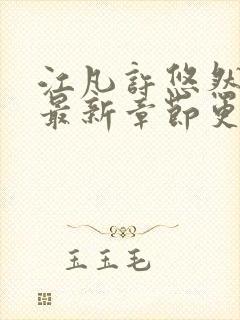 江凡许悠然
最新章节更
玉玉毛